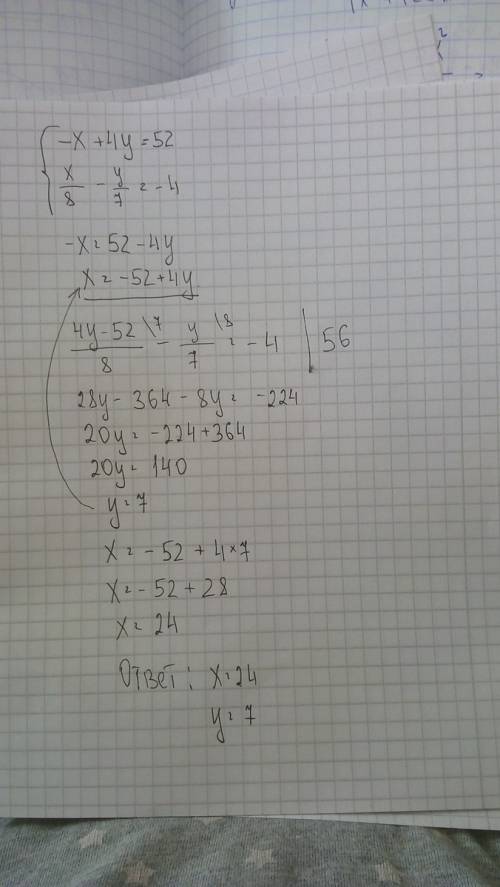 -x + 4y = 52
x/8 - y/7 = -4
-x = 52 - 4y
x = -52 + 4y
4y-52 \7 / 8 - y \8 / 7 = -4 | 56
28y - 364 - 8y = -224
20y = -224 + 364
20y = 140
y = 7
x = -52 + 4 × 7
x = -52 + 28
x = 24
Ответ: x = 24
y = 7